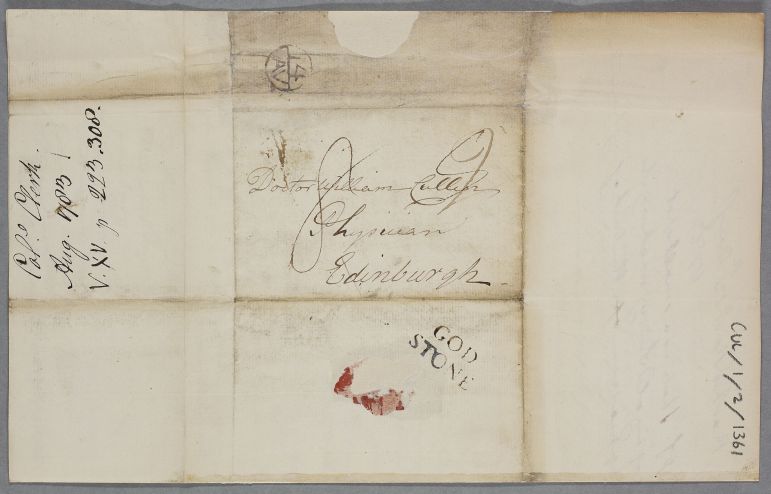 14
AV
Doctor William Cullen
Physician
Edinburgh
GOD
STONE
Clerk.
Aug. 1783
V. XV. p 223.308.
CUL/1/2/1361